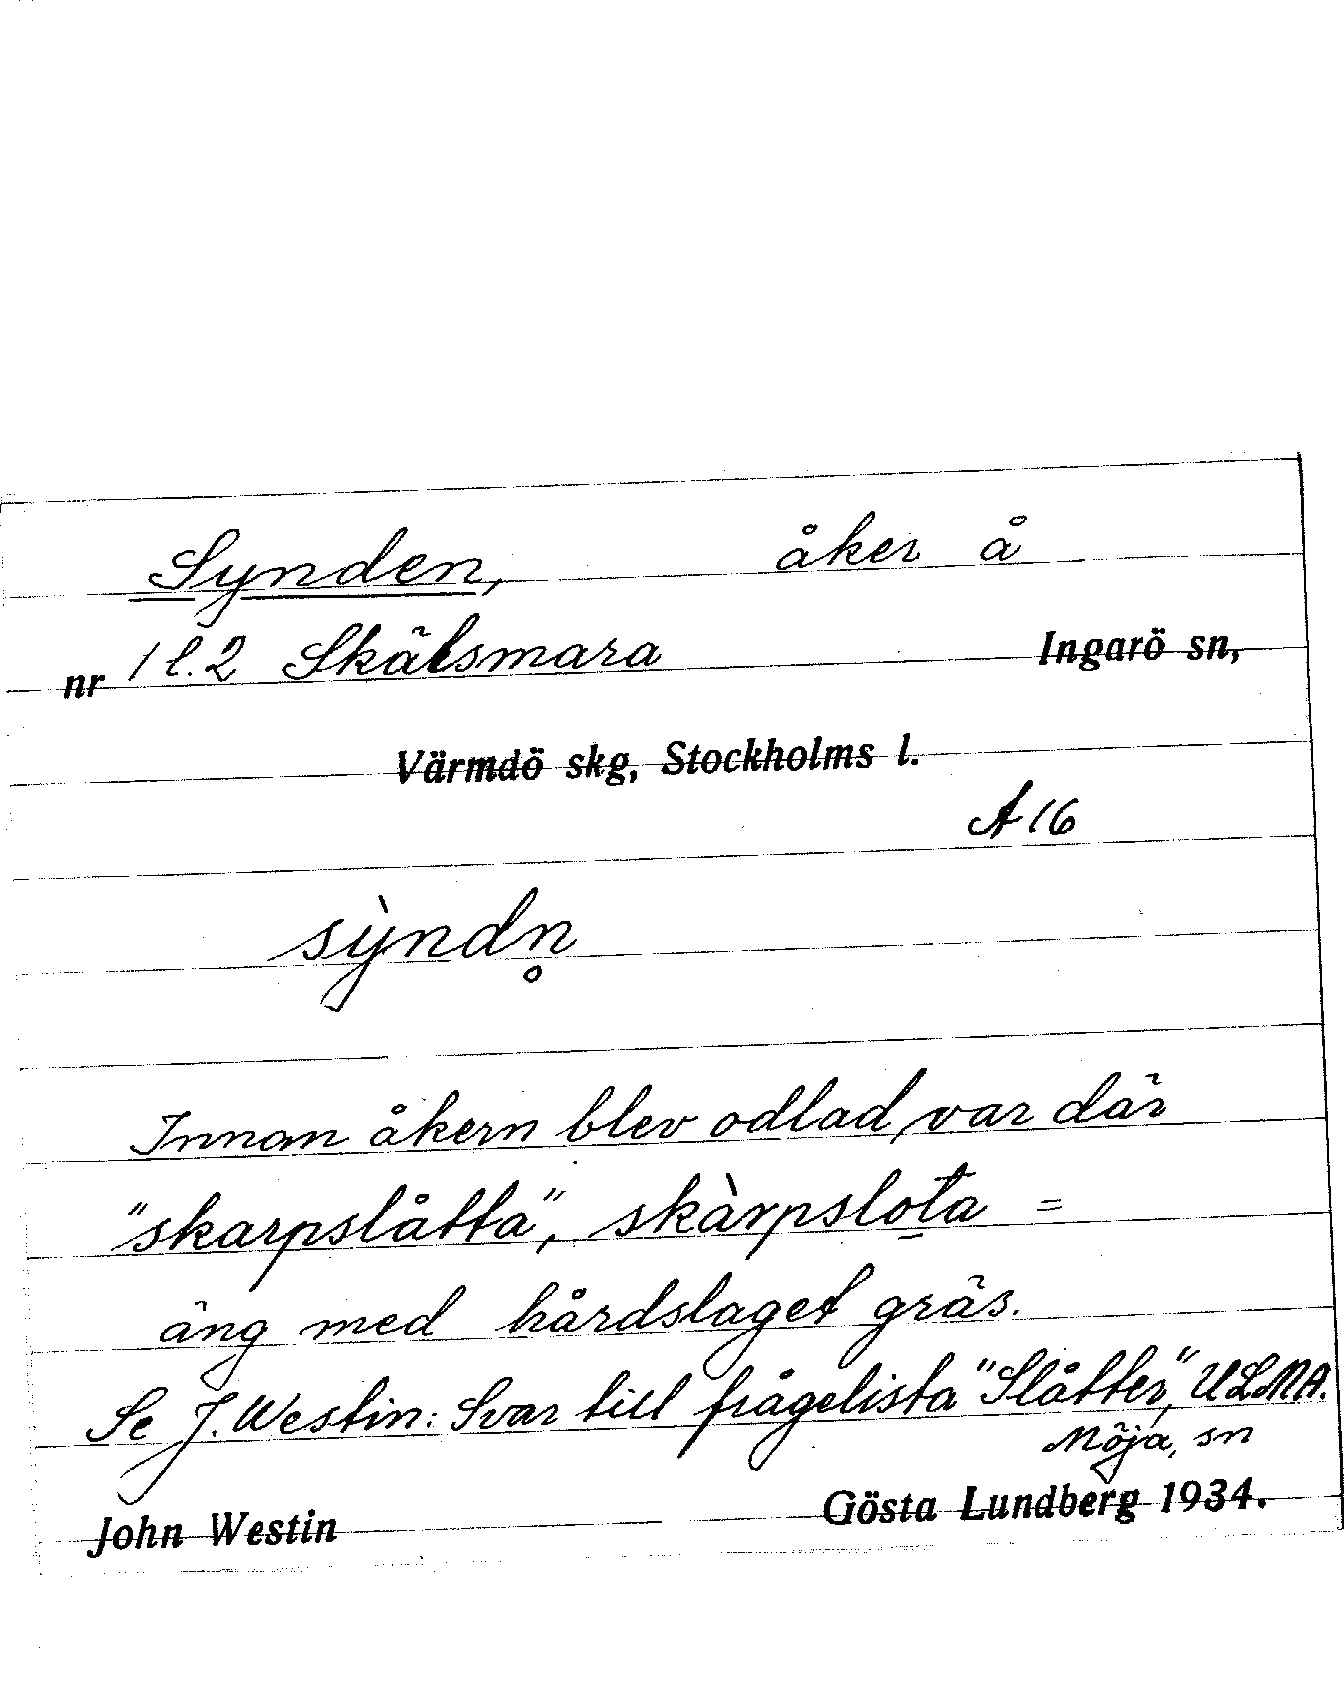 Synden, åker å
nr 1 l. 2 Skälsmara Ingarö sn,
Värmdö skg, Stockholms l.
A 16
sỳndn̥
Innan åkern blev odlad, var där
"skarpslåtta", skàrpslo̠ta =
äng med hårdslaget gräs.
Se J. Westin: Svar till frågelista "Slåtter", ULMA.
Möja, sn
John Westin Gösta Lundberg 1934.